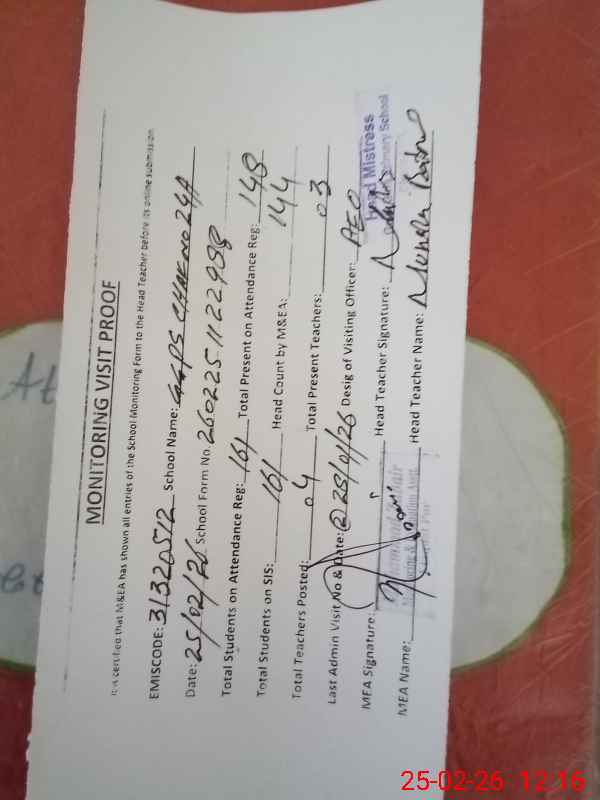 MONITORING VISIT PROOF
It is certified that M&EA has shown all entries of the School Monitoring Form to the Head Teacher before its online submission
EMISCODE: 31320512 School Name: GGPS CHAK NO 24A
Date: 25/02/26 School Form No. 260225112298
Total Students on Attendance Reg: 161 Total Present on Attendance Reg: 148
Total Students on SIS: 161 Head Count by M&EA: 144
Total Teachers Posted: 04 Total Present Teachers: 03
Last Admin Visit No & Date: 2 28/01/26 Desig of Visiting Officer: AEO
MEA Signature: Head Teacher Signature:
Head Mistress
Primary School
MEA Name: Head Teacher Name:
25-02-26 12:16